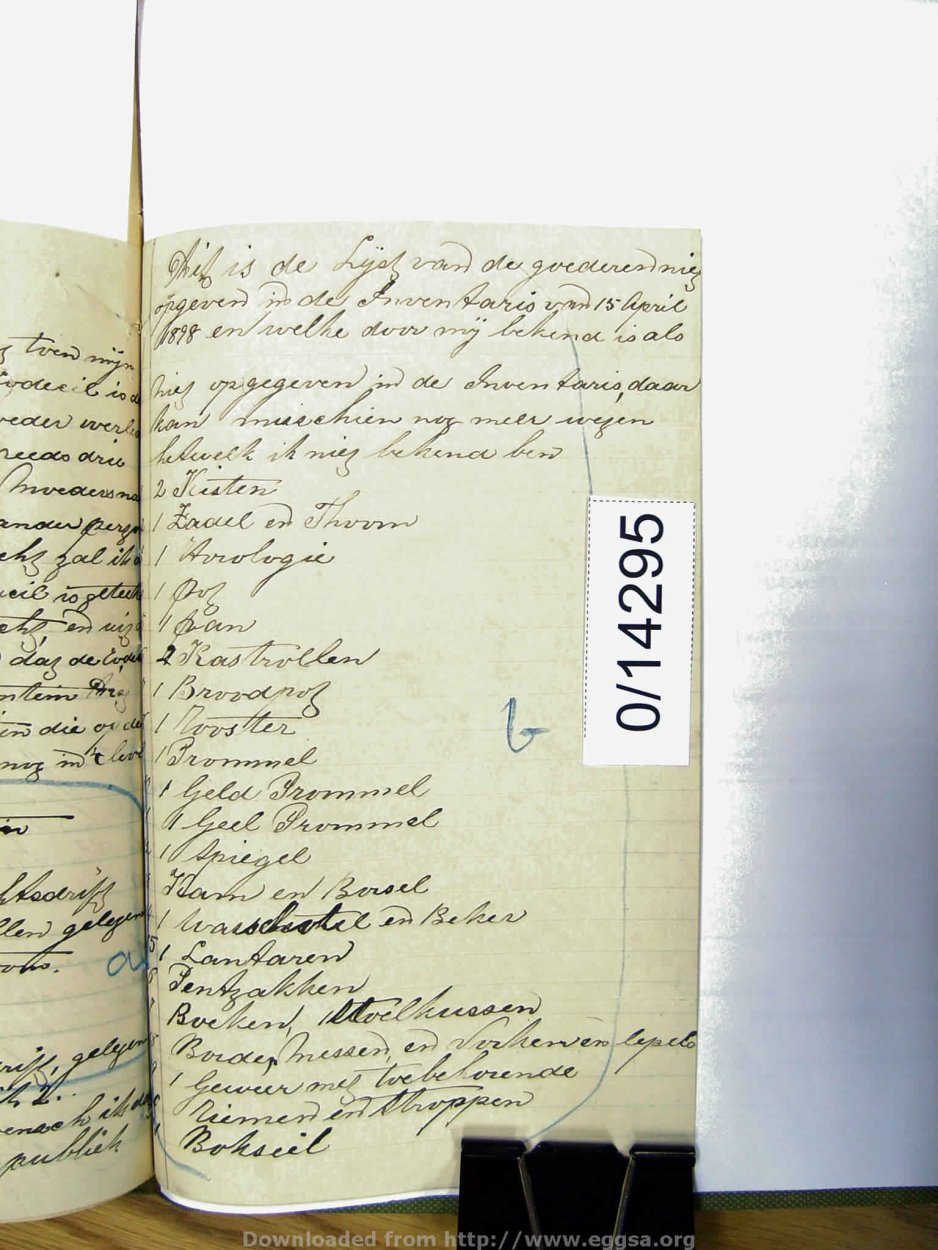 Dit is de Lijst van de goederen niet
opgeven in de Inventaris van 15 April
1898 en welke door mij bekend is als
niet opgegeven in de Inventaris, daar
kan misschien nog meer wezen
hetwelk ik niet bekend ben
2 Kisten
1 Zadel en Thoom
1 Horologie
1 Pot
1 Pan
2 Kastrollen
1 Broodpot
1 Rooster
1 Trommel
1 Geld Trommel
1 Geel Trommel
1 Spiegel
Kam en Borsel
1 waschotel en Beker
1 Lantaren
Tentzakken
Boeken, 1 Stoelkussen
Borde, messen, en Vorken en lepels
1 Geweer met toebehorende
Riemen en Stroppen
Bokseil
b
0/14295
toen mijn
reeds drie
Moeders
zal ik
en uit
die
nog in 't
gelegen
a
gelegen
ik
publiek
Downloaded from http://www.eggsa.org